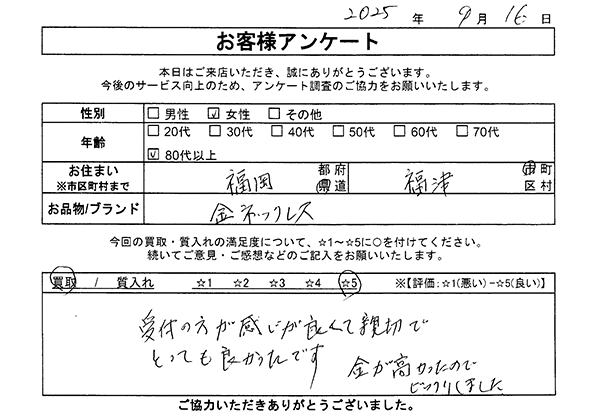 2025 年 9 月 16 日
お客様アンケート
本日はご来店いただき、誠にありがとうございます。
今後のサービス向上のため、アンケート調査のご協力をお願いいたします。
性別 □ 男性 ☑ 女性 □ その他
年齢 □ 20代 □ 30代 □ 40代 □ 50代 □ 60代 □ 70代
☑ 80代以上
お住まい ※市区町村まで 福岡 都府県道 福津 市町区村
お品物/ブランド 金ネックレス
今回の買取・質入れの満足度について、☆1〜☆5に○を付けてください。
続いてご意見・ご感想などのご記入をお願いいたします。
買取 / 質入れ ☆1 ☆2 ☆3 ☆4 ☆5 ※【評価:☆1(悪い)−☆5(良い)】
受付の方が感じが良くて親切で
とっても良かったです
金が高かったので
びっくりしました
ご協力いただきありがとうございました。